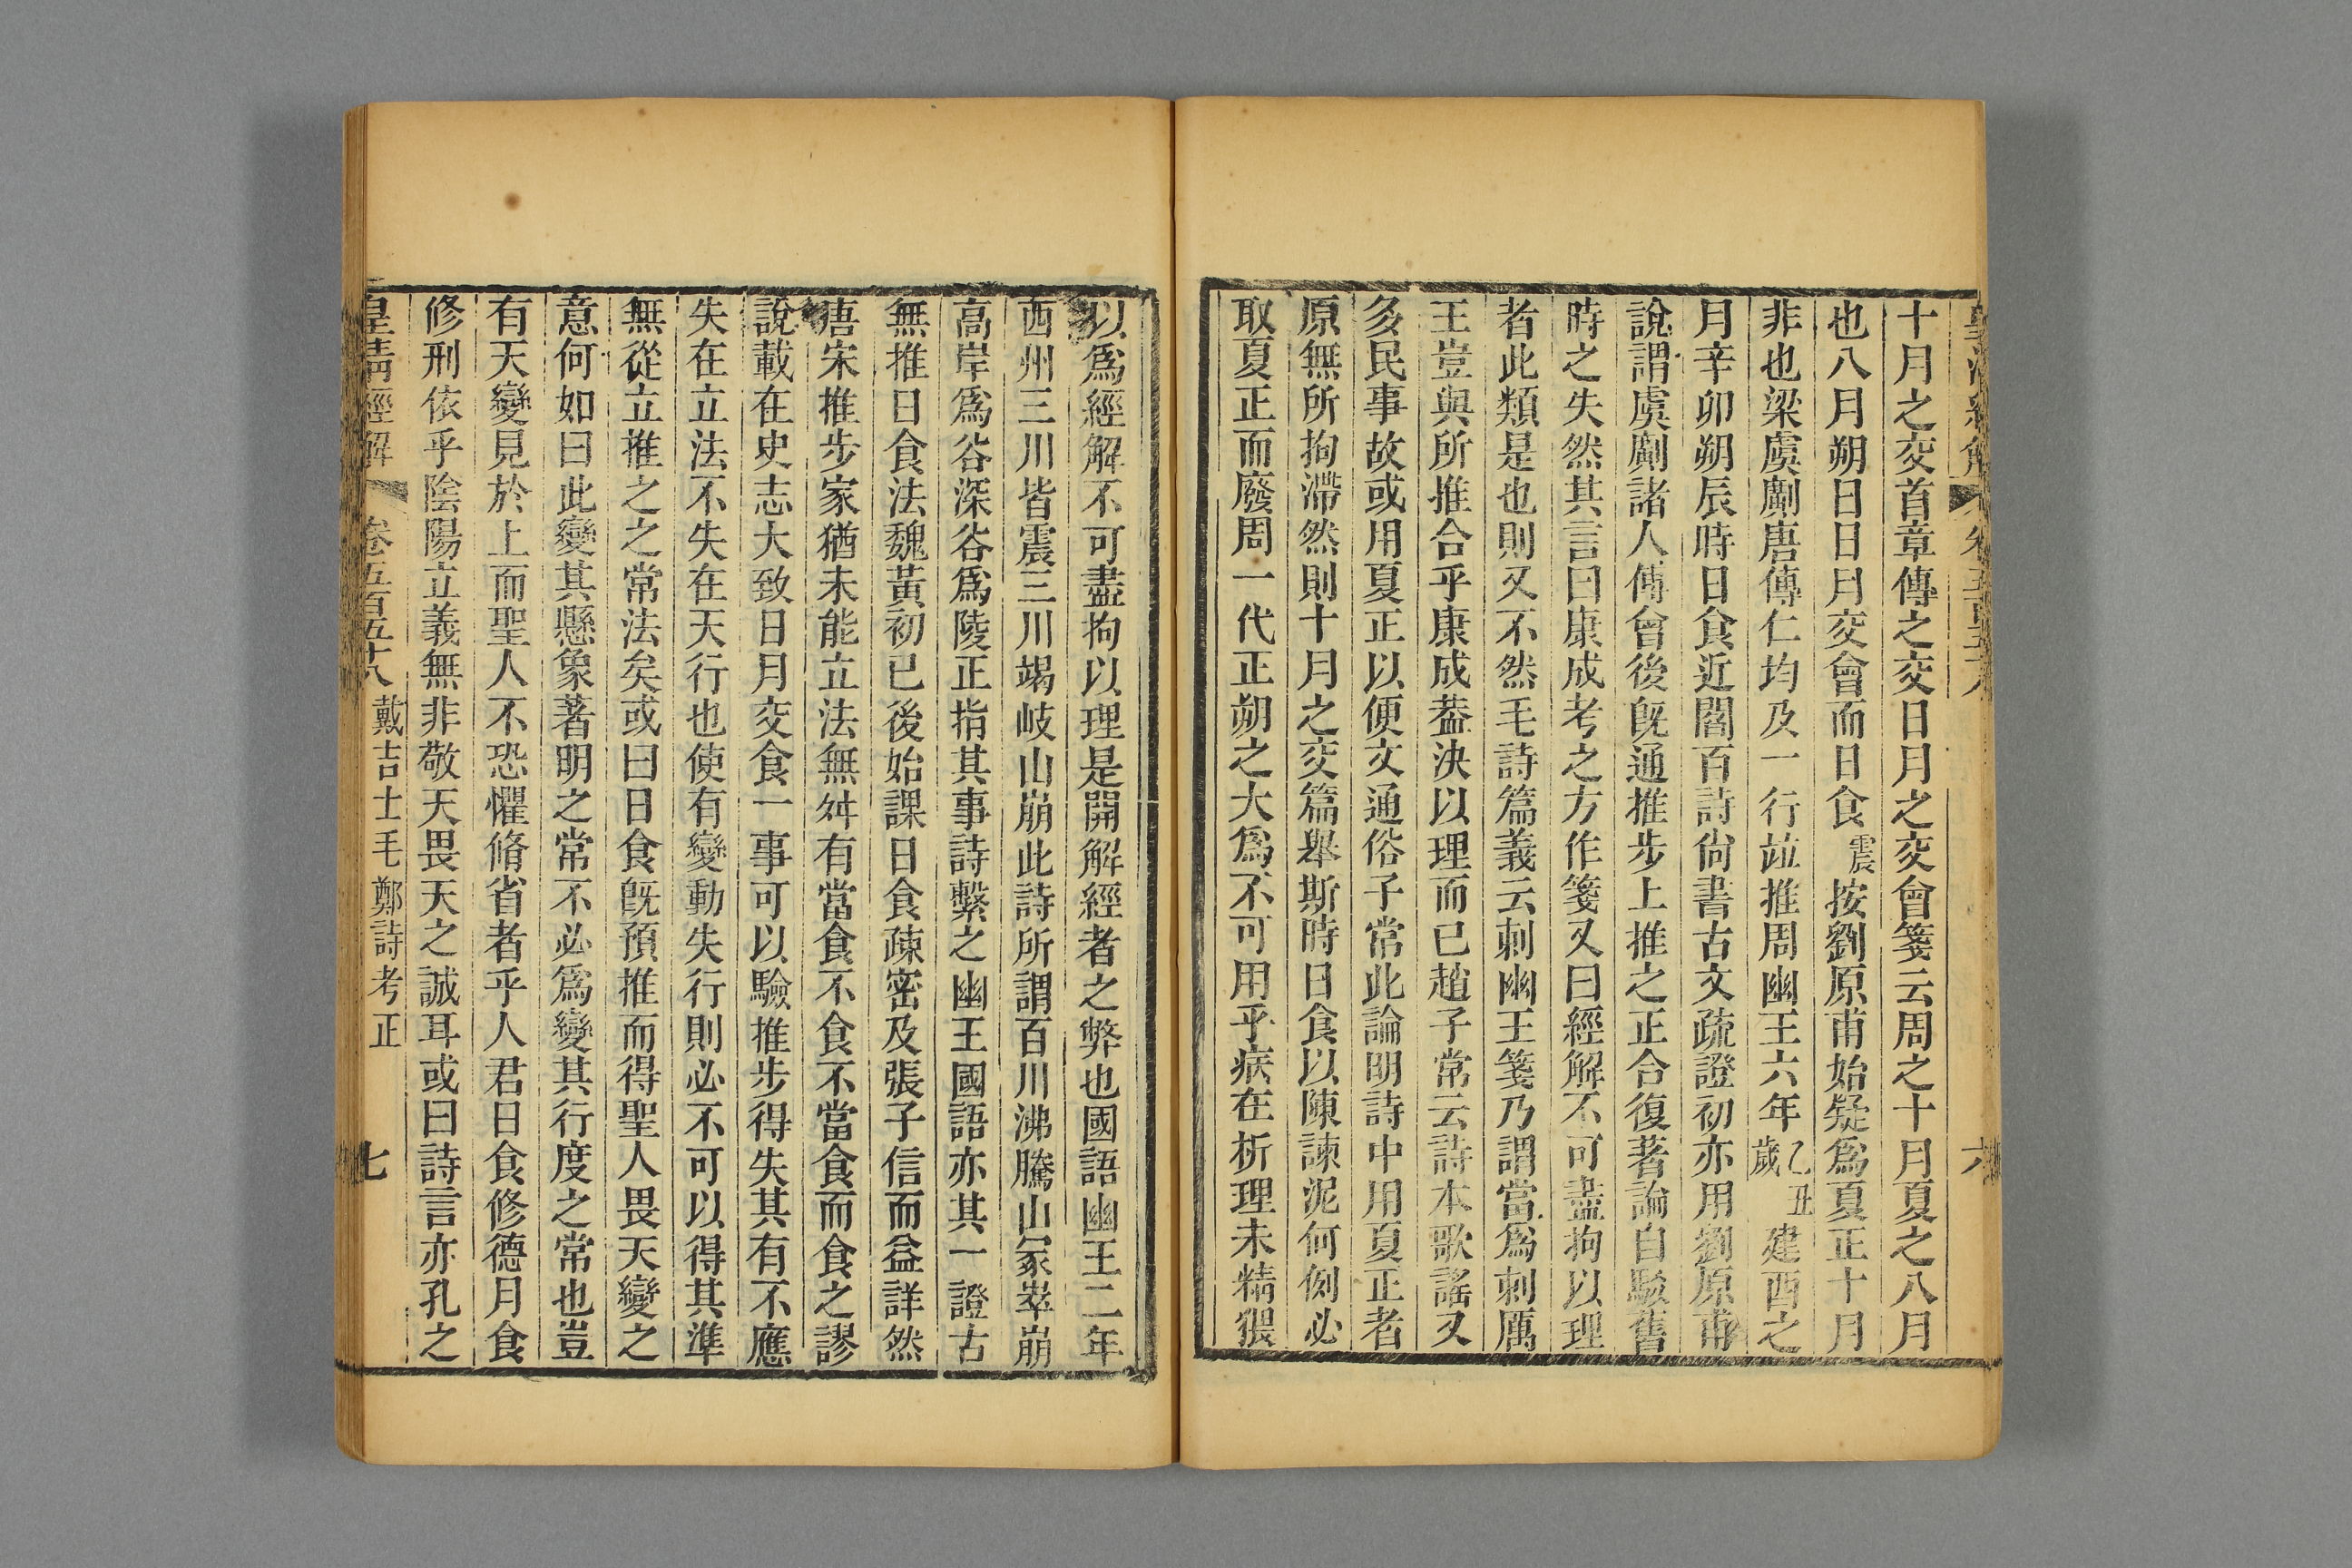 皇清經解 卷五百五十八 六
十月之交首章傳之交日月之交會箋云周之十月夏之八月
也八月朔日日月交會而日食震按劉原甫始疑爲夏正十月
非也梁虞𠠎唐傅仁均及一行竝推周幽王六年乙丑歲建酉之
月辛卯朔辰時日食近閻百詩尙書古文疏證初亦用劉原甫
說謂虞𠠎諸人傅會後旣通推步上推之正合復著論自駁舊
時之失然其言曰康成考之方作箋又曰經解不可盡拘以理
者此類是也則又不然毛詩篇義云刺幽王箋乃謂當爲刺厲
王豈與所推合乎康成葢決以理而已趙子常云詩本歌謠又
多民事故或用夏正以便文通俗子常此論明詩中用夏正者
原無所拘滯然則十月之交篇舉斯時日食以陳諫泥何例必
取夏正而廢周一代正朔之大爲不可用乎病在析理未精猥
以爲經解不可盡拘以理是開解經者之弊也國語幽王二年
西州三川皆震三川竭岐山崩此詩所謂百川沸騰山冢崒崩
高岸爲谷深谷爲陵正指其事詩繫之幽王國語亦其一證古
無推日食法魏黃初已後始課日食疎密及張子信而益詳然
唐宋推步家猶未能立法無舛有當食不食不當食而食之謬
說載在史志大致日月交食一事可以驗推步得失其有不應
失在立法不失在天行也使有變動失行則必不可以得其準
無從立推之之常法矣或曰日食旣預推而得聖人畏天變之
意何如曰此變其懸象著明之常不必爲變其行度之常也豈
有天變見於上而聖人不恐懼脩省者乎人君日食修德月食
修刑依乎陰陽立義無非敬天畏天之誠耳或曰詩言亦孔之
皇清經解 卷五百五十八 戴吉士毛鄭詩考正 七